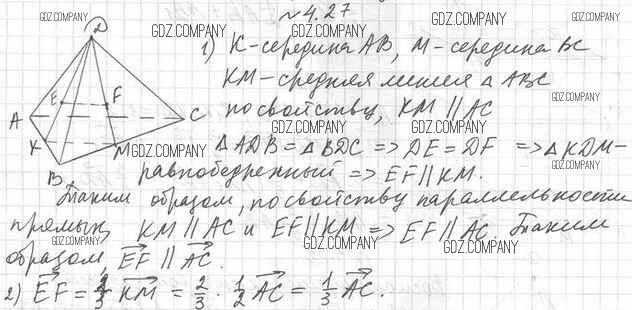 №4.27
D
1) K-середина AB, M-середина BC
KM-средняя линия △ ABC
по свойству, KM ∥ AC
E F
A C
K M
B
△ADB = △BDC => DE = DF => △KDM-
равнобедренный => EF ∥ KM.
Таким образом, по свойству параллельности
прямых KM ∥ AC и EF ∥ KM => EF ∥ AC. Таким
образом, EF ∥ AC.
2) EF = 2/3 KM = 2/3 · 1/2 AC = 1/3 AC.
GDZ.COMPANY
GDZ.COMPANY
GDZ.COMPANY
GDZ.COMPANY
GDZ.COMPANY
GDZ.COMPANY
GDZ.COMPANY
GDZ.COMPANY
GDZ.COMPANY
GDZ.COMPANY
GDZ.COMPANY
GDZ.COMPANY
GDZ.COMPANY